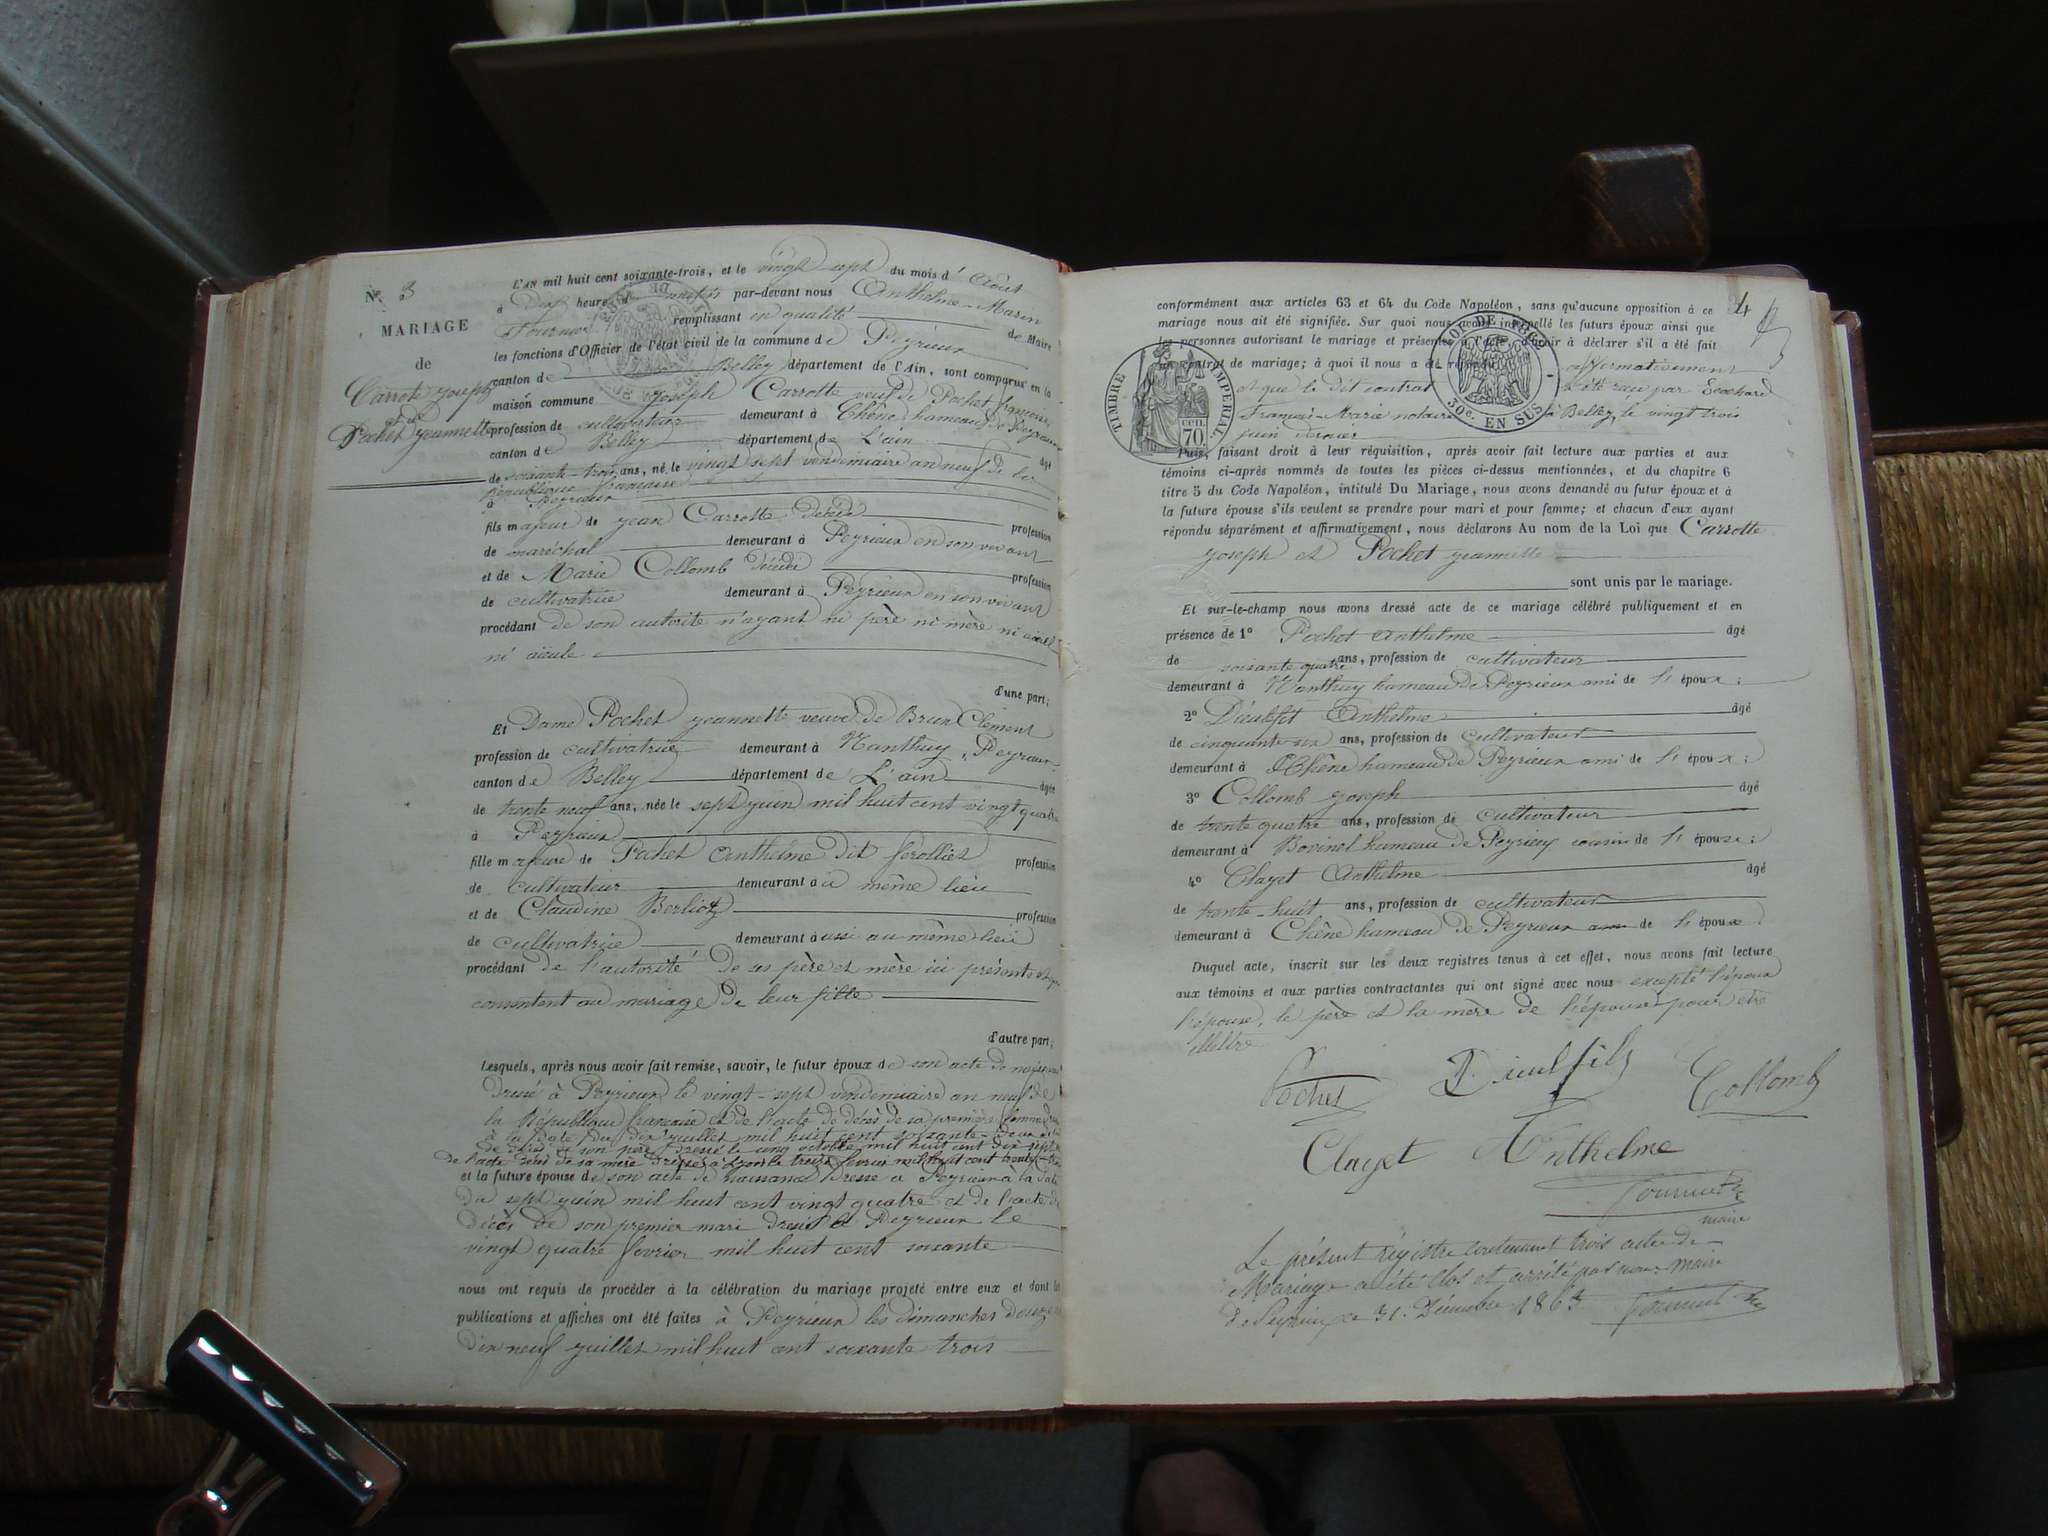 N.º 3
MARIAGE
de
Carrote Joseph
et de
Pochet Jeannette
L'AN mil huit cent soixante-trois, et le vingt-sept du mois d' Août
à dix heures du matin par-devant nous Anthelme-Marin
Fournier remplissant en qualité de Maire
les fonctions d'Officier de l'état civil de la commune de Peyrieux
canton de Belley département de l'Ain, sont comparus en la
maison commune Joseph Carrotte veuf de Pochet françoise
profession de cultivateur demeurant à Chêne hameau de Peyrieux
canton de Belley département de L'ain âgé
de soixante-trois ans, né le vingt sept vendémiaire an neuf de la
République française
à Peyrieux
fils majeur de Jean Carrotte décédé profession
de maréchal demeurant à Peyrieux en son vivant
et de Marie Collomb décédée profession
de cultivatrice demeurant à Peyrieux en son vivant
procédant de son autorité n'ayant ni père ni mère ni aïeul
ni aïeule
d'une part;
Et Dame Pochet Jeannette veuve de Brun Clément
profession de cultivatrice demeurant à Nanthuy, Peyrieux
canton de Belley département de L'ain âgée
de trente neuf ans, née le sept juin mil huit cent vingt quatre
à Peyrieux
fille majeure de Pochet Anthelme dit férolliet profession
de cultivateur demeurant à à même lieu
et de Claudine Berlioz profession
de cultivatrice demeurant à ussi au même lieu
procédant de l'autorité de ses père et mère ici présents et qui
consentent au mariage de leur fille
d'autre part;
Lesquels, après nous avoir fait remise, savoir, le futur époux de son acte de naissance
dressé à Peyrieux le vingt-sept vendémiaire an neuf de
la République française et de l'acte de décès de sa première femme
à la date du dix juillet mil huit cent soixante-deux
de décès de son père dressé le cinq octobre mil huit cent dix sept
de l'acte décès de sa mère dressé à Lyon le treize février mil huit cent trente
et la future épouse de son acte de naissance dressé à Peyrieux à la date
du sept juin mil huit cent vingt quatre et de l'acte de
décès de son premier mari dressé à Peyrieux le
vingt quatre février mil huit cent soixante
nous ont requis de procéder à la célébration du mariage projeté entre eux et dont les
publications et affiches ont été faites à Peyrieux les dimanches douze et
dix neuf juillet mil huit cent soixante trois
4
conformément aux articles 63 et 64 du Code Napoléon, sans qu'aucune opposition à ce
mariage nous ait été signifiée. Sur quoi nous avons interpellé les futurs époux ainsi que
les personnes autorisant le mariage et présentes à l'acte, d'avoir à déclarer s'il a été fait
un contrat de mariage; à quoi il nous a été répondu affirmativement
et que le dit contrat a été reçu par Evochard
François-Marie notaire à Belley, le vingt trois
juin dernier
TIMBRE IMPERIAL
CCIL
70
LOI DE
30c. EN SUS
Puis, faisant droit à leur réquisition, après avoir fait lecture aux parties et aux
témoins ci-après nommés de toutes les pièces ci-dessus mentionnées, et du chapitre 6
titre 5 du Code Napoléon, intitulé Du Mariage, nous avons demandé au futur époux et à
la future épouse s'ils veulent se prendre pour mari et pour femme; et chacun d'eux ayant
répondu séparément et affirmativement, nous déclarons Au nom de la Loi que Carrotte
Joseph et Pochet Jeannette
sont unis par le mariage.
Et sur-le-champ nous avons dressé acte de ce mariage célébré publiquement et en
présence de 1º Pochet Anthelme âgé
de soixante quatre ans, profession de cultivateur
demeurant à Nanthuy hameau de Peyrieux ami de l'époux;
2º Dieulefit Anthelme âgé
de cinquante six ans, profession de cultivateur
demeurant à Chêne hameau de Peyrieux ami de l'époux;
3º Collomb Joseph âgé
de trente quatre ans, profession de cultivateur
demeurant à Bovinel hameau de Peyrieux cousin de l'épouse;
4º Clayet Anthelme âgé
de trente-huit ans, profession de cultivateur
demeurant à Chêne hameau de Peyrieux ami de l'époux
Duquel acte, inscrit sur les deux registres tenus à cet effet, nous avons fait lecture
aux témoins et aux parties contractantes qui ont signé avec nous excepté l'époux
l'épouse, le père et la mère de l'épouse pour être
illétré
Pochet Dieulfils Collomb
Clayet Anthelme
Fournier
maire
Le présent régistre contenant trois actes de
Mariage a été clos et arrêté par nous maire
de Peyrieux ce 31 Décembre 1863 Fournier